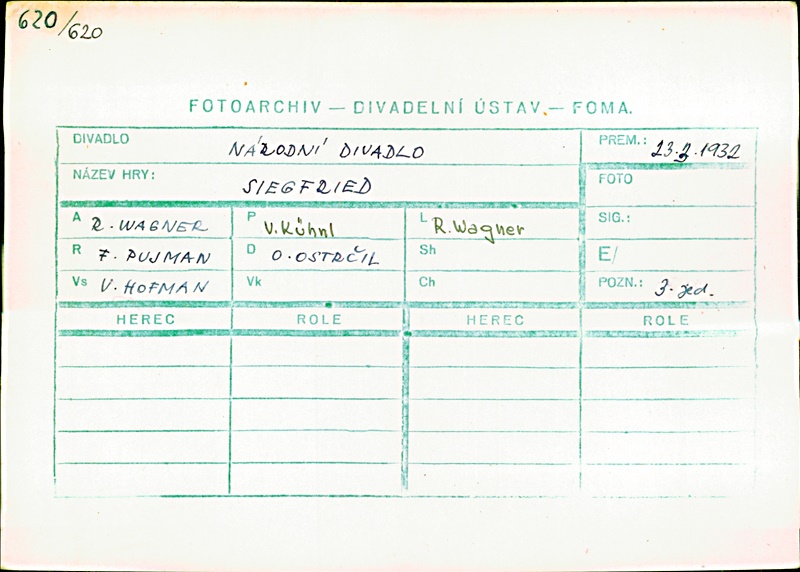 620/620
FOTOARCHIV — DIVADELNÍ ÚSTAV — FOMA.
DIVADLO NÁRODNÍ DIVADLO PREM.: 23.2.1932
NÁZEV HRY: SIEGFRIED FOTO
A R. WAGNER P V. Kühnl L R. Wagner SIG.:
R F. PUJMAN D O. OSTRČIL Sh E/
Vs V. HOFMAN Vk Ch POZN.: 3. jed.
HEREC ROLE HEREC ROLE